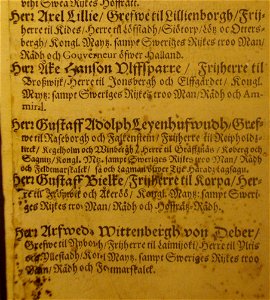 Her: Axel Lillie/ Grefwe til Lillienborgh/ Frij-
herre til Kides/ Herre til Löfstadh/ Siötorp/ Lötz oc Otters-
bergh/ Kongl. Maytz. sampt Sweriges Rijkes troo Man/
Rådh och Gouverneur öfwer Halland.
Her: Åke Hansson Ulffsparre / Frijherre til
Broxwijk/ Herre til Jonsbergh och Elffgärdet/ Kongl.
Maytz. sampt Sweriges Rijkes troo Man/ Rådh och Am-
miral.
Her: Gustaff Adolph Leyenhufwudh/ Gref-
we til Raseborgh och Falkenstein/ Frijherre til Reipholdz-
kirck/ Kegelholm och Winbergh/ Herre til Gräffsnäs/ Koberg och
Sagnitz/ Kongl. Mtz. sampt Sweriges Rijkes troo Man/ Rådh
och Feldtmarskalck/ så och Lagman öfwer Häradz Lagsagu.
Her: Gustaff Bielke/ Frijherre til Korpa/ Her-
re til och Åkeröö/ Kongl. Maytz. sampt Swerig-
ges Rijkes troo Man/ Rådh och Hoffrätz-Rådh.
Her: Arfwedh Wittenbergh von Deber/
Grefwe til Nyborg/ Frijherre til Loimijoki/ Herre til
och Yllestadh/ Kongl. Maytz. sampt Sweriges Rijkes troo
Man/ Rådh och Feltmarskalck.